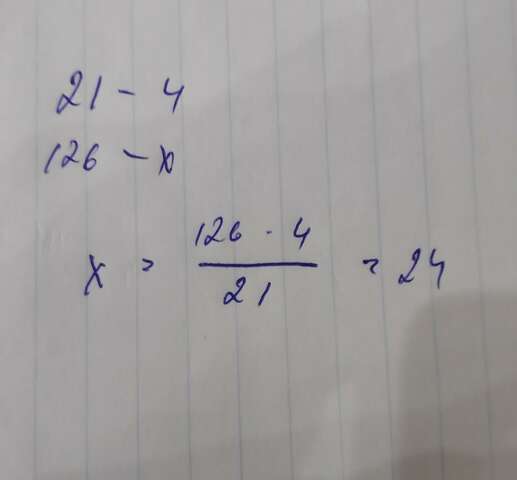 21 - 4
126 - x
x = 126 · 4 / 21 = 24